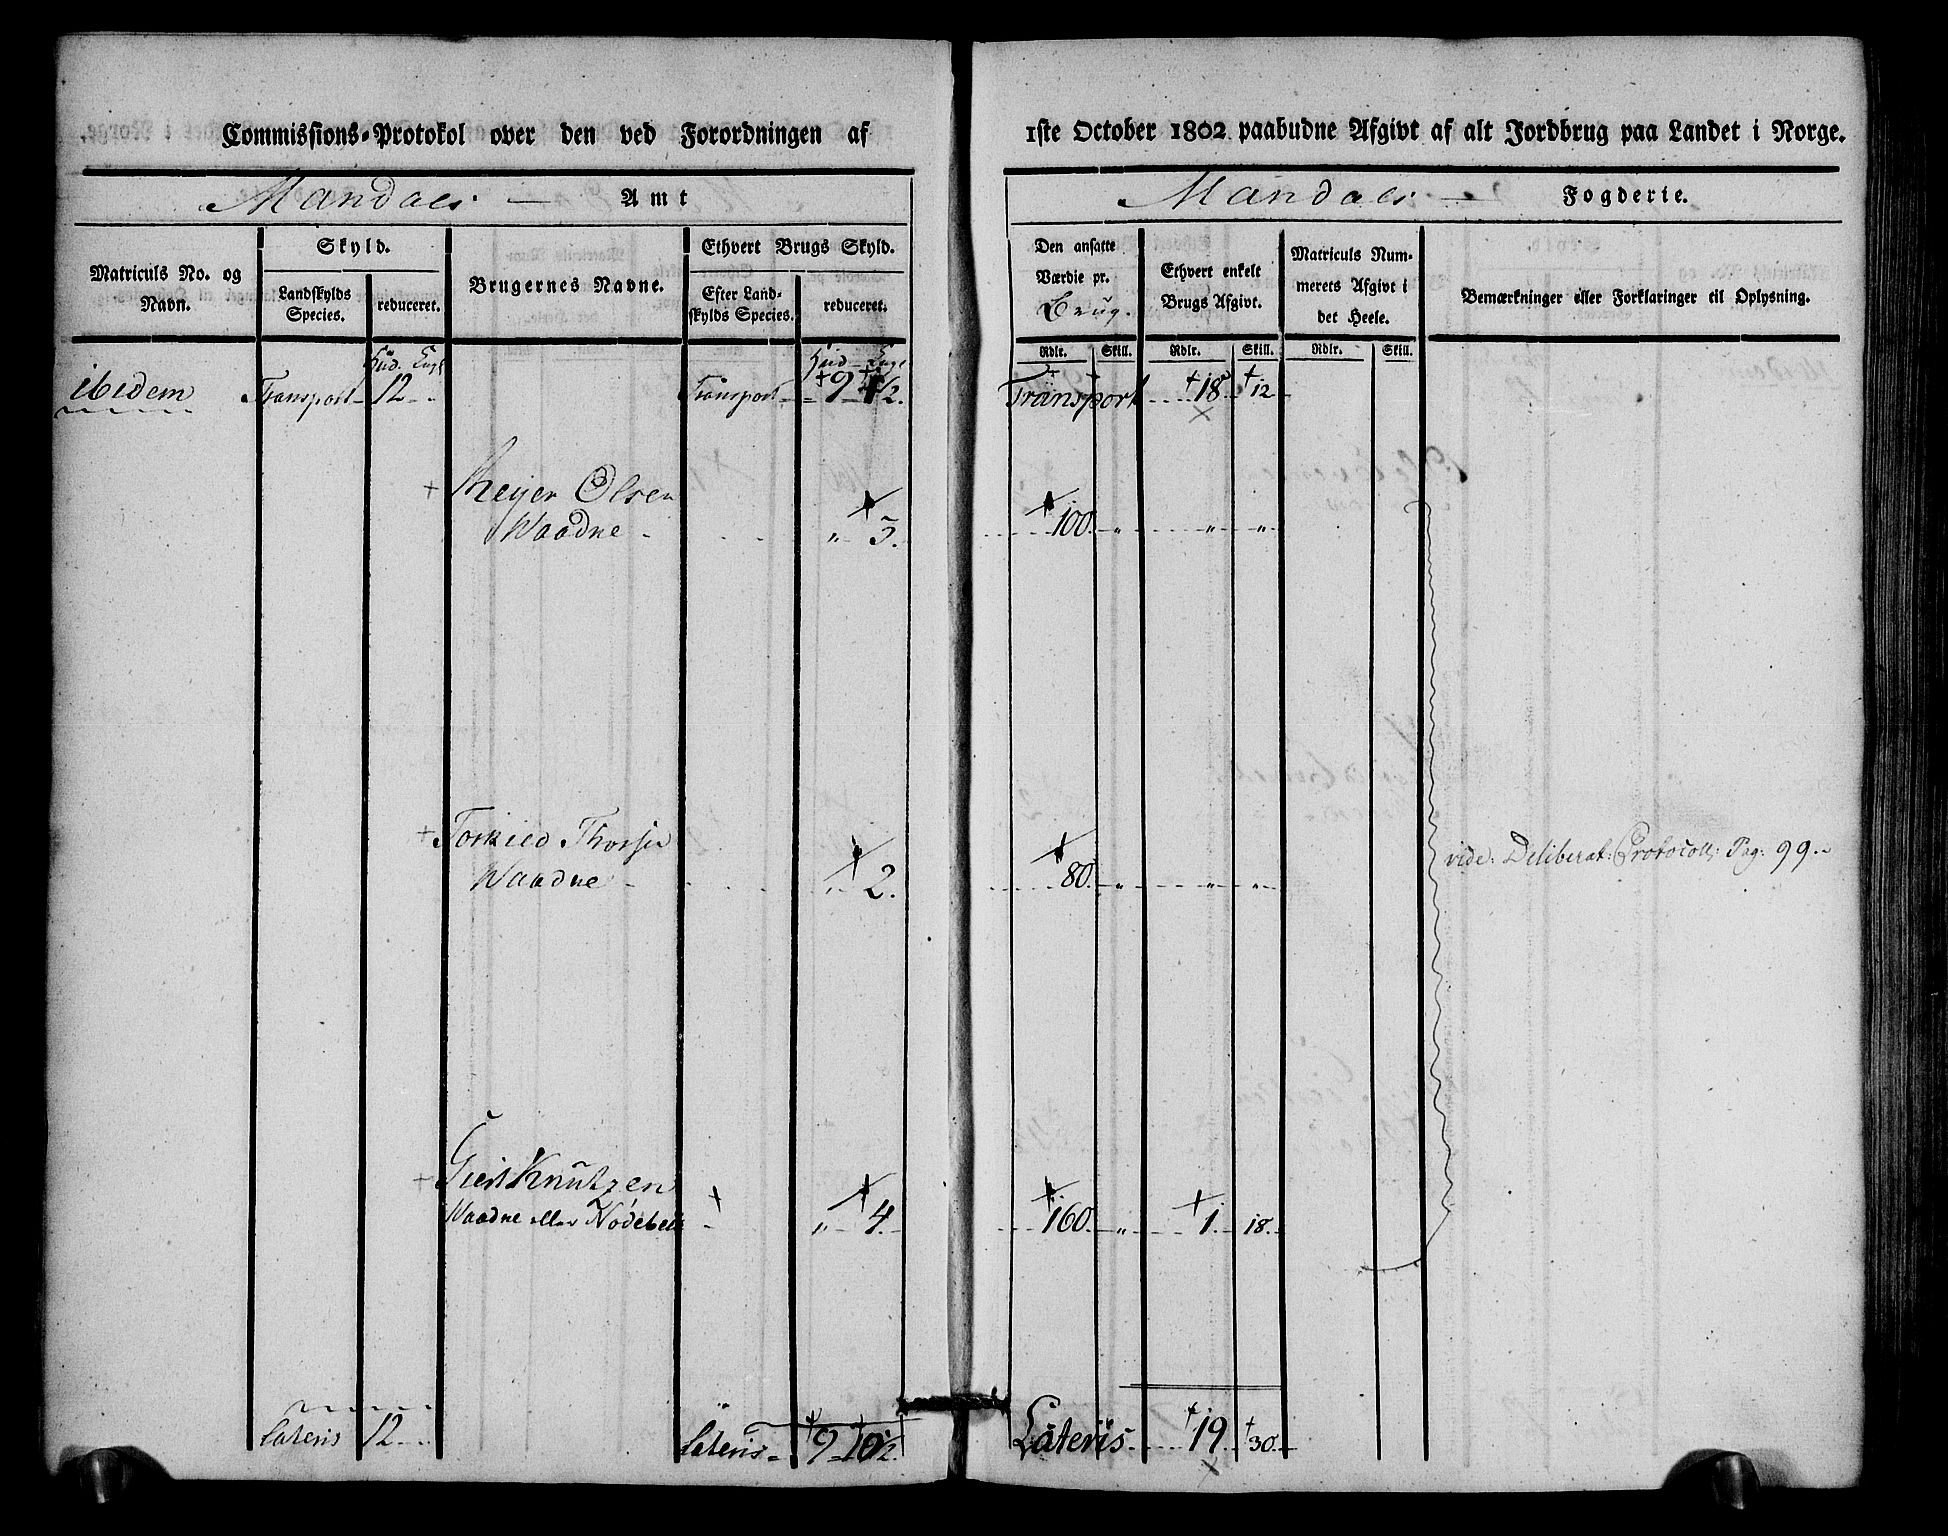 Commissions-Protokol over den ved Forordningen af
1ste October 1802 paabudne Afgivt af alt Jordbrug paa Landet i Norge.
Mandals — Amt
Mandals — Fogderie.
Matriculs No. og Navn.
Skyld.
Landskylds Species.
reduceret.
Brugernes Navne.
Ethvert Brugs Skyld.
Efter Landskylds Species.
reduceret.
Den ansatte Værdie pr. Brug.
Ethvert enkelt Brugs Afgivt.
Matriculs Nummerets Afgivt i det Heele.
Bemærkninger eller Forklaringer til Oplysning.
Rdlr. Skill. Rdlr. Skill. Rdlr. Skill.
ibidem Transport 12 Transport 9 Transport 18 12
Olsen
Waadne 3. 100
Thorsen
Waadne 2. 80
vide: Deliberat: Protocoll: Pag: 99
Knutzen
Waadne eller 4. 160 1. 18.
Lateris 12 Lateris 9 10½ Lateris 19 30